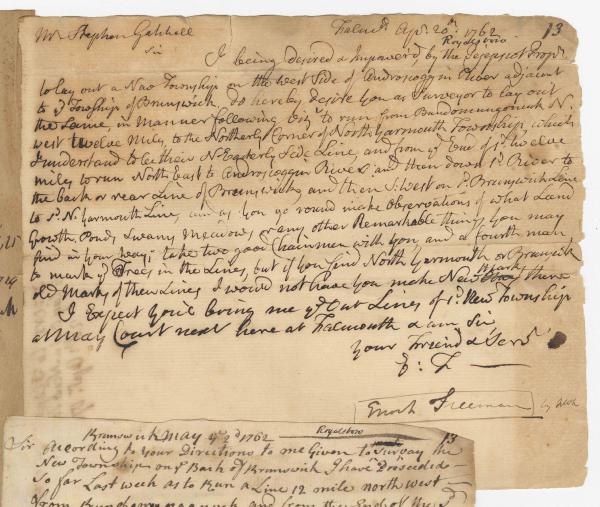 Mr Stephen Getchell Falmo. Apr. 20th. 1762 13
Sir Royalsboro
I being desired & Impower'd by the Pejepscot Proprs
to lay out a New Township on the West Side of Androscoggin River adjacent
to ye Township of Brunswick, do hereby desire You as Surveyor to lay out
the Same, in Manner following Vizt to run from Bundomungomuck N.
west twelve Miles, to the Northerly Corner of North Yarmouth Township, which
I understand to be their N. Easterly Side Line, and from ye End of sd. twelve
miles to run North East to Androscoggin River & then down sd. River to
the back or rear Line of Brunswick, and then S. West on sd. Brunswick Line
to sd. N. Yarmouth Line, and as You go round make Observations of what Land
Growth, Ponds, Swamps, Meadows, or any other Remarkable things You may
find in Your way; take two good Chainmen with You, and a fourth man
to mark ye Trees in the Lines, but if You find North Yarmouth or Brunswick
old Marks of their Lines I would not have You make New Marks there
I Expect You'l bring me ye Out Lines of sd. New Township
at May Court next here at Falmouth & am Sir
Your Friend & Serv.
E: F
Enoch Freeman
Brunswick May ye 2d 1762 Royalsboro 13
Sir According to Your Directions to me Given to Survay the
New Township on ye Back of Brunswick I have Proseeded
So far Last week as to Run a Line 12 mile north west
from and from the End of the sd